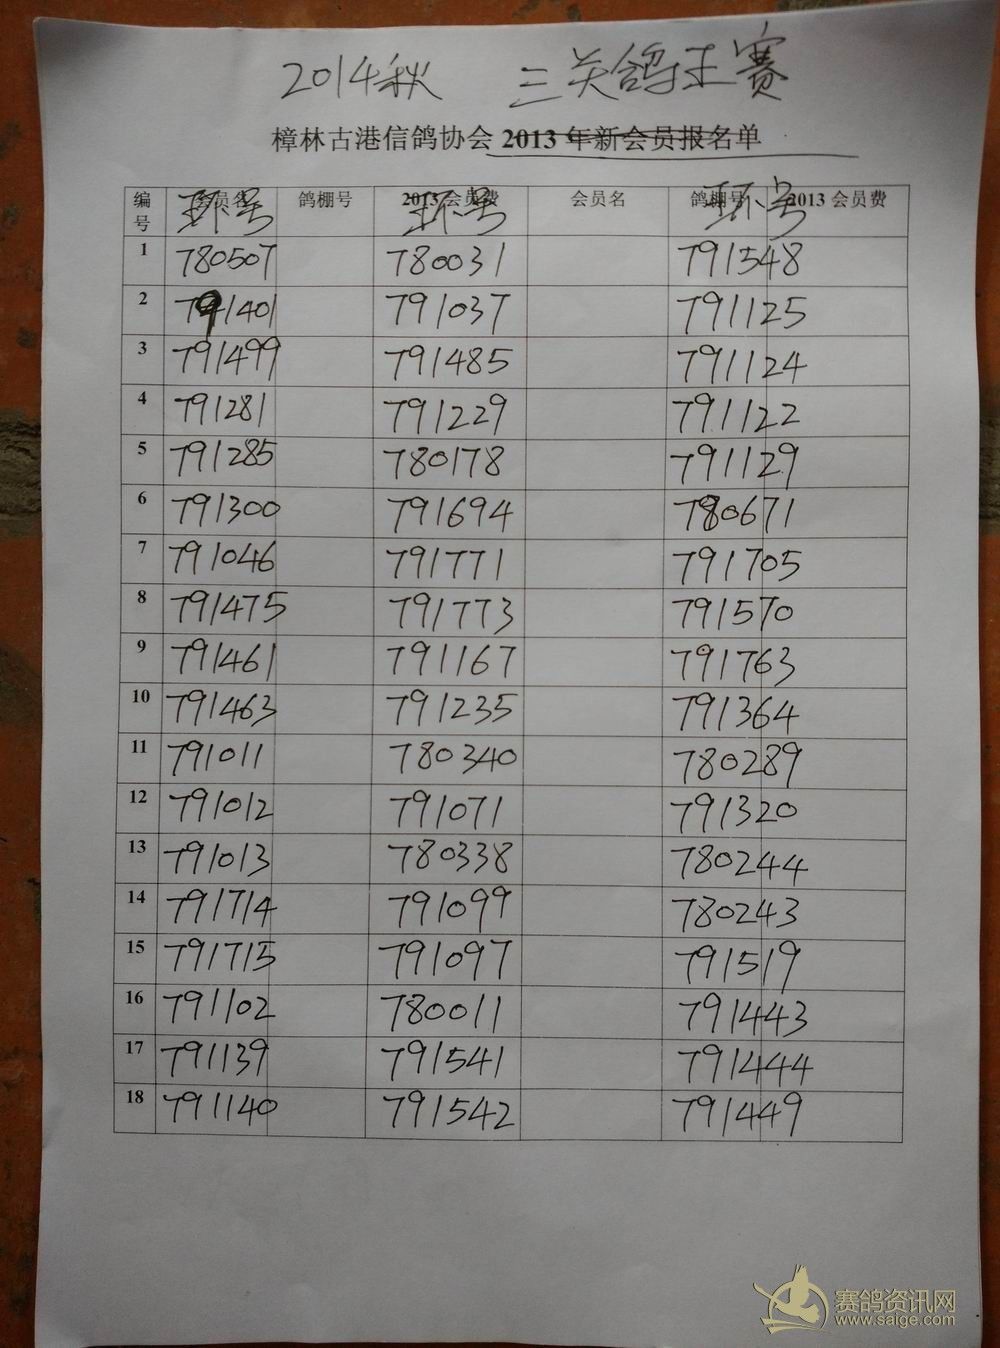 2014秋 三关鸽王赛
樟林古港信鸽协会 2013 年新会员报名单
编号 会员名 环号 鸽棚号 2013 会员费 环号 会员名 鸽棚号 环号 2013 会员费
1 780507 780031 791548
2 791401 791037 791125
3 791499 791485 791124
4 791281 791229 791122
5 791285 780178 791129
6 791300 791694 780671
7 791046 791771 791705
8 791475 791773 791570
9 791461 791167 791763
10 791463 791235 791364
11 791011 780340 780289
12 791012 791071 791320
13 791013 780338 780244
14 791714 791099 780243
15 791715 791097 791519
16 791102 780011 791443
17 791139 791541 791444
18 791140 791542 791449
赛鸽资讯网
www.saige.com